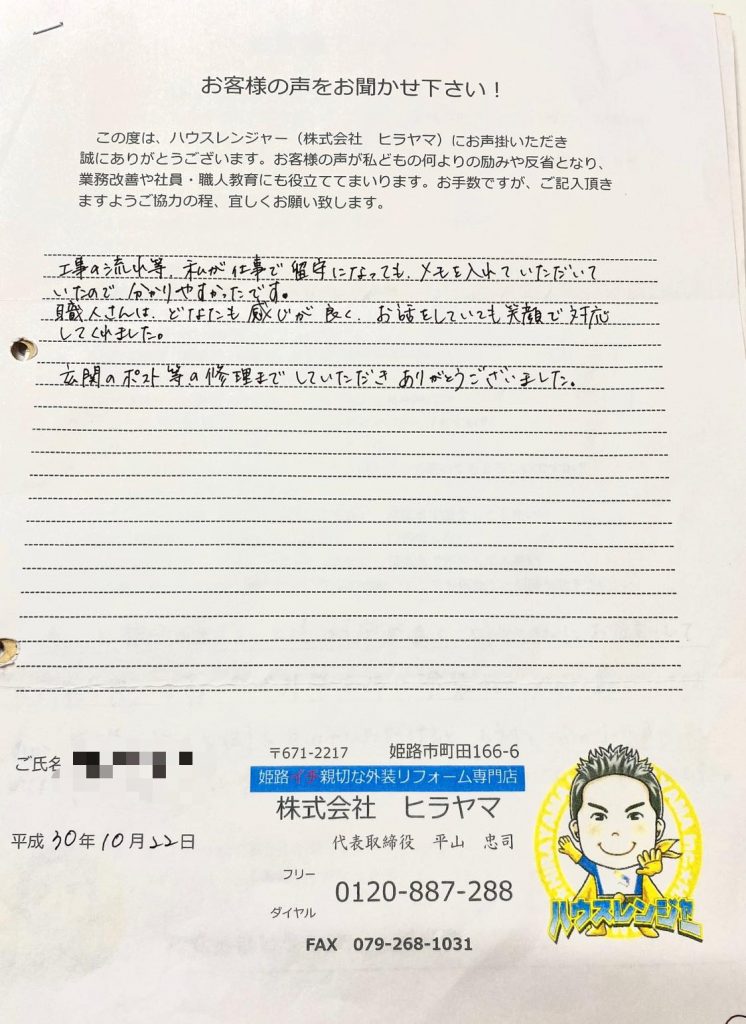 お客様の声をお聞かせ下さい！
この度は、ハウスレンジャー（株式会社　ヒラヤマ）にお声掛いただき
誠にありがとうございます。お客様の声が私どもの何よりの励みや反省となり、
業務改善や社員・職人教育にも役立ててまいります。お手数ですが、ご記入頂き
ますようご協力の程、宜しくお願い致します。
工事の流れ等、私が仕事で留守になっても、メモを入れていただいて
いたので、分かりやすかったです。
職人さんは、どなたも感じが良く、お話をしていても笑顔で対応
してくれました。
玄関のポスト等の修理までしていただきありがとうございました。
ご氏名
平成30年10月22日
〒671-2217　姫路市町田166-6
姫路イチ親切な外装リフォーム専門店
株式会社　ヒラヤマ
代表取締役　平山　忠司
フリー
ダイヤル
0120-887-288
FAX　079-268-1031
ハウスレンジャー